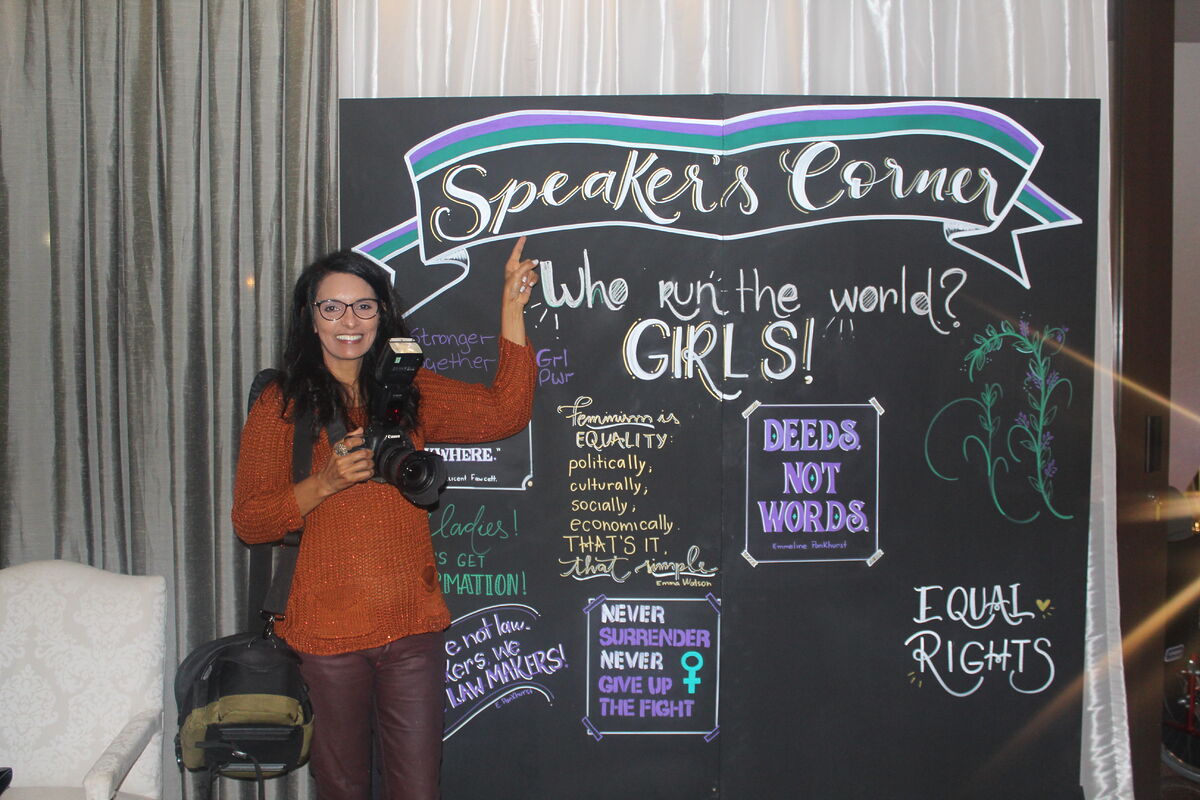 Speaker's Corner
Who run the world?
GIRLS!
Stronger
Together
Grl
Pwr
WHERE."
icent Fawcett
Feminism is
EQUALITY:
politically;
culturally;
socially;
economically.
THAT'S IT.
that simple
Emma Watson
DEEDS.
NOT
WORDS.
Emmeline Pankhurst
ladies!
'S GET
RMATION!
e not law-
kers, we
LAW MAKERS!
E Pankhurst
NEVER
SURRENDER
NEVER
GIVE UP
THE FIGHT
EQUAL
RIGHTS
Canon